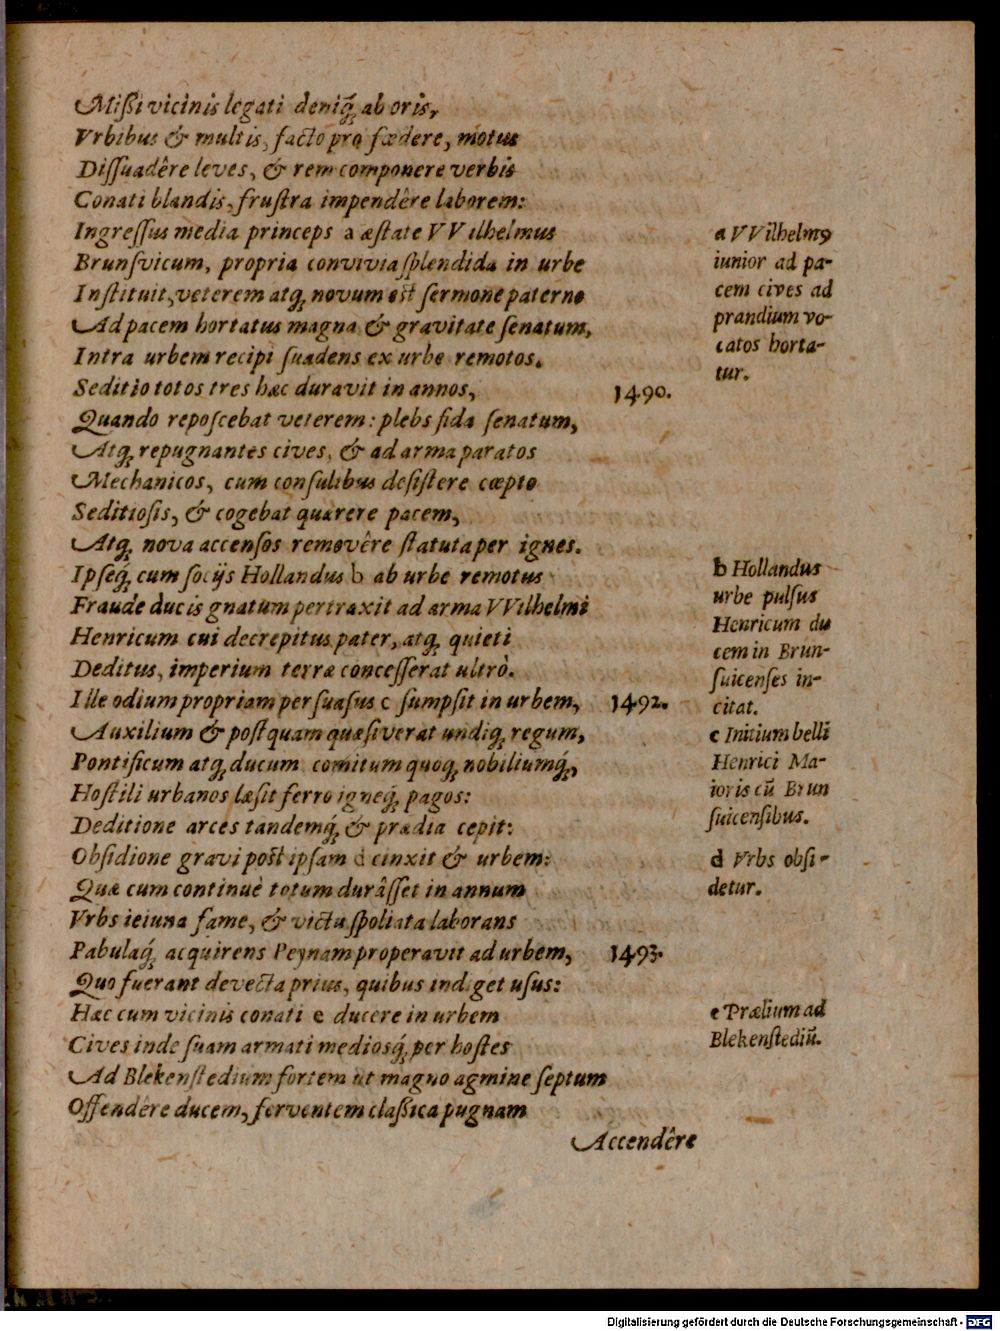 Mißi vicinis legati deniq́ꝫ ab oris,
Vrbibus & multis, facto pro fœdere, motus
Diſſuadêre leves, & rem componere verbis
Conati blandis, fruſtra impendêre laborem:
Ingreſſus media princeps a æſtate VVilhelmus
Brunſvicum, propria convivia ſplendida in urbe
Inſtituit, veterem atqꝫ novum eſt ſermone paterno
Ad pacem hortatus magna & gravitate ſenatum,
Intra urbem recipi ſuadens ex urbe remotos.
Seditio totos tres hæc duravit in annos, 1490.
Quando repoſcebat veterem: plebs fida ſenatum,
Atqꝫ repugnantes cives, & ad arma paratos
Mechanicos, cum conſulibus deſiſtere cœpto
Seditioſis, & cogebat quærere pacem,
Atqꝫ nova accenſos removêre ſtatuta per ignes.
Ipſeq́ꝫ cum ſocijs Hollandus b ab urbe remotus
Fraude ducis gnatum pertraxit ad arma VVilhelmi
Henricum cui decrepitus pater, atqꝫ quieti
Deditus, imperium terræ conceſſerat ultrò.
Ille odium propriam perſuaſus c ſumpſit in urbem, 1492.
Auxilium & poſtquam quæſiverat undiqꝫ regum,
Pontificum atqꝫ ducum comitum quoqꝫ nobiliumq́ꝫ,
Hoſtili urbanos læſit ferro igneq́ꝫ pagos:
Deditione arces tandemq́ꝫ & prædia cepit:
Obſidione gravi poſt ipſam d cinxit & urbem:
Quæ cum continuè totum durâſſet in annum
Vrbs ieiuna fame, & victu ſpoliata laborans
Pabulaq́ꝫ acquirens Peynam properavit ad urbem, 1493.
Quo fuerant devecta prius, quibus indiget uſus:
Hæc cum vicinis conati e ducere in urbem
Cives inde ſuam armati medioſq́ꝫ per hoſtes
Ad Blekenſtedium fortem ut magno agmine ſeptum
Offendêre ducem, ferventem claßica pugnam
Accendêre
a VVilhelmꝰ
iunior ad pa-
cem cives ad
prandium vo-
catos horta-
tur.
b Hollandus
urbe pulſus
Henricum du
cem in Brun-
ſuicenſes in-
citat.
c Initium belli
Henrici Ma-
ioris cũ Brun
ſuicenſibus.
d Vrbs obſi-
detur.
e Prælium ad
Blekenſtediũ.
Digitalisierung gefördert durch die Deutsche Forschungsgemeinschaft - DFG